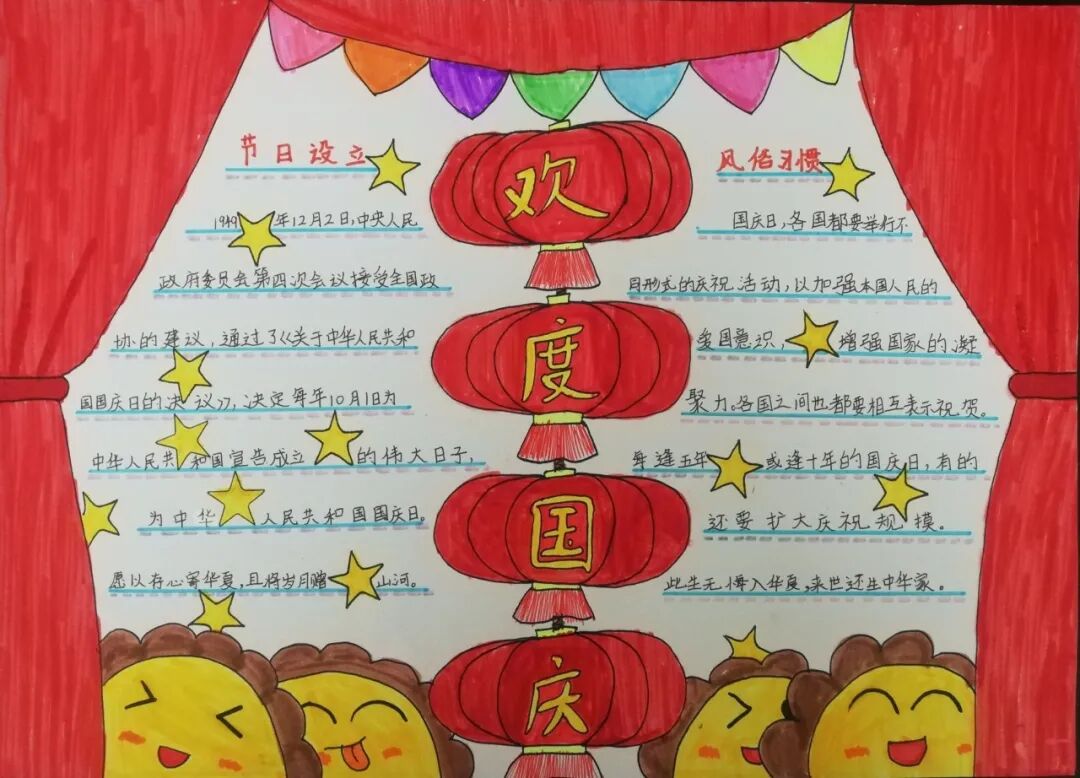 欢度国庆
节日设立
1949年12月2日,中央人民
政府委员会第四次会议接受全国政
协的建议,通过了《关于中华人民共和
国国庆日的决议》,决定每年10月1日为
中华人民共和国宣告成立的伟大日子,
为中华人民共和国国庆日。
愿以存心寄华夏,且将岁月赠山河。
风俗习惯
国庆日,各国都要举行不
同形式的庆祝活动,以加强本国人民的
爱国意识,增强国家的凝
聚力。各国之间也都要相互表示祝贺。
每逢五年或逢十年的国庆日,有的
还要扩大庆祝规模。
此生无悔入华夏,来世还生中华家。